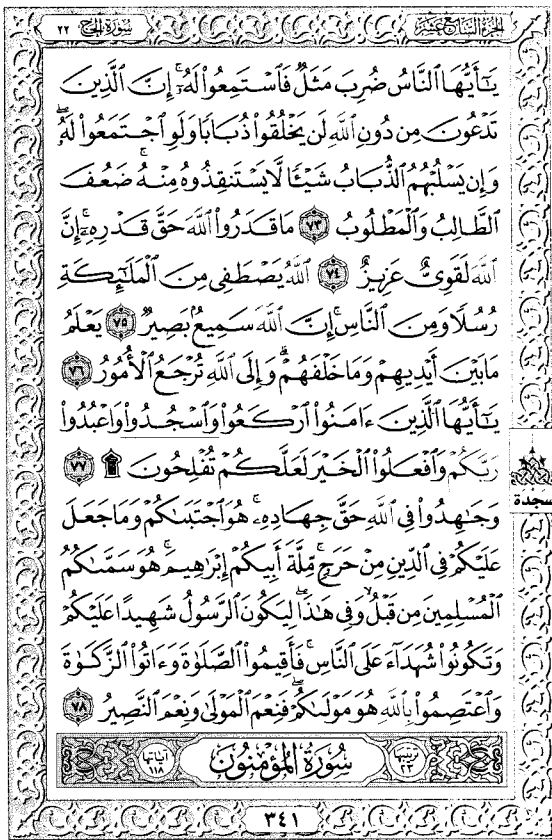 الجزء السابع عشر سورة الحج ٢٢
يَٰٓأَيُّهَا ٱلنَّاسُ ضُرِبَ مَثَلٌ فَٱسْتَمِعُوا۟ لَهُۥٓ ۚ إِنَّ ٱلَّذِينَ
تَدْعُونَ مِن دُونِ ٱللَّهِ لَن يَخْلُقُوا۟ ذُبَابًا وَلَوِ ٱجْتَمَعُوا۟ لَهُۥ ۖ
وَإِن يَسْلُبْهُمُ ٱلذُّبَابُ شَيْـًٔا لَّا يَسْتَنقِذُوهُ مِنْهُ ۚ ضَعُفَ
ٱلطَّالِبُ وَٱلْمَطْلُوبُ ٧٣ مَا قَدَرُوا۟ ٱللَّهَ حَقَّ قَدْرِهِۦٓ ۗ إِنَّ
ٱللَّهَ لَقَوِىٌّ عَزِيزٌ ٧٤ ٱللَّهُ يَصْطَفِى مِنَ ٱلْمَلَٰٓئِكَةِ
رُسُلًا وَمِنَ ٱلنَّاسِ ۚ إِنَّ ٱللَّهَ سَمِيعٌۢ بَصِيرٌ ٧٥ يَعْلَمُ
مَا بَيْنَ أَيْدِيهِمْ وَمَا خَلْفَهُمْ ۗ وَإِلَى ٱللَّهِ تُرْجَعُ ٱلْأُمُورُ ٧٦
يَٰٓأَيُّهَا ٱلَّذِينَ ءَامَنُوا۟ ٱرْكَعُوا۟ وَٱسْجُدُوا۟ وَٱعْبُدُوا۟
رَبَّكُمْ وَٱفْعَلُوا۟ ٱلْخَيْرَ لَعَلَّكُمْ تُفْلِحُونَ ۩ ٧٧
سجدة
وَجَٰهِدُوا۟ فِى ٱللَّهِ حَقَّ جِهَادِهِۦ ۚ هُوَ ٱجْتَبَىٰكُمْ وَمَا جَعَلَ
عَلَيْكُمْ فِى ٱلدِّينِ مِنْ حَرَجٍ ۚ مِّلَّةَ أَبِيكُمْ إِبْرَٰهِيمَ ۚ هُوَ سَمَّىٰكُمُ
ٱلْمُسْلِمِينَ مِن قَبْلُ وَفِى هَٰذَا لِيَكُونَ ٱلرَّسُولُ شَهِيدًا عَلَيْكُمْ
وَتَكُونُوا۟ شُهَدَآءَ عَلَى ٱلنَّاسِ ۚ فَأَقِيمُوا۟ ٱلصَّلَوٰةَ وَءَاتُوا۟ ٱلزَّكَوٰةَ
وَٱعْتَصِمُوا۟ بِٱللَّهِ هُوَ مَوْلَىٰكُمْ ۖ فَنِعْمَ ٱلْمَوْلَىٰ وَنِعْمَ ٱلنَّصِيرُ ٧٨
ترتيبها ٢٣ سُورَةُ المُؤْمِنُونَ آياتها ١١٨
٣٤١